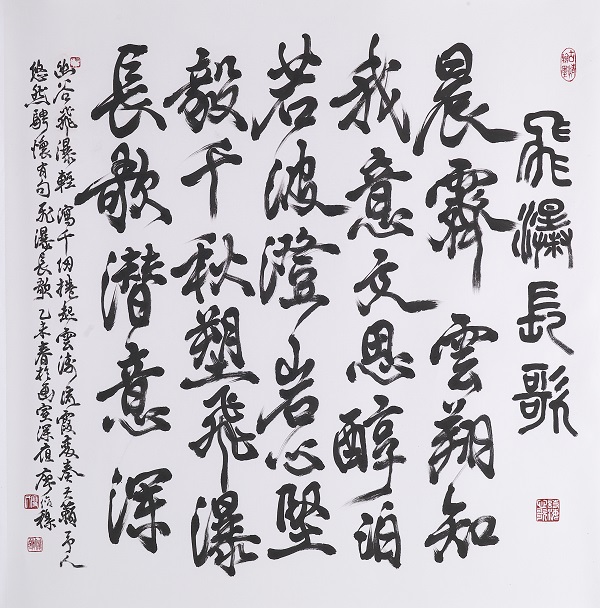 飛瀑長歌
晨霽雲翔知
我意文思醇泊
若波澄岩心堅
毅千秋塑飛瀑
長歌潜意深
幽谷飛瀑輕瀉千仞捲起雲濤流霞奏天籟予人
悠然騁懷有句飛瀑長歌乙未春於畫室深